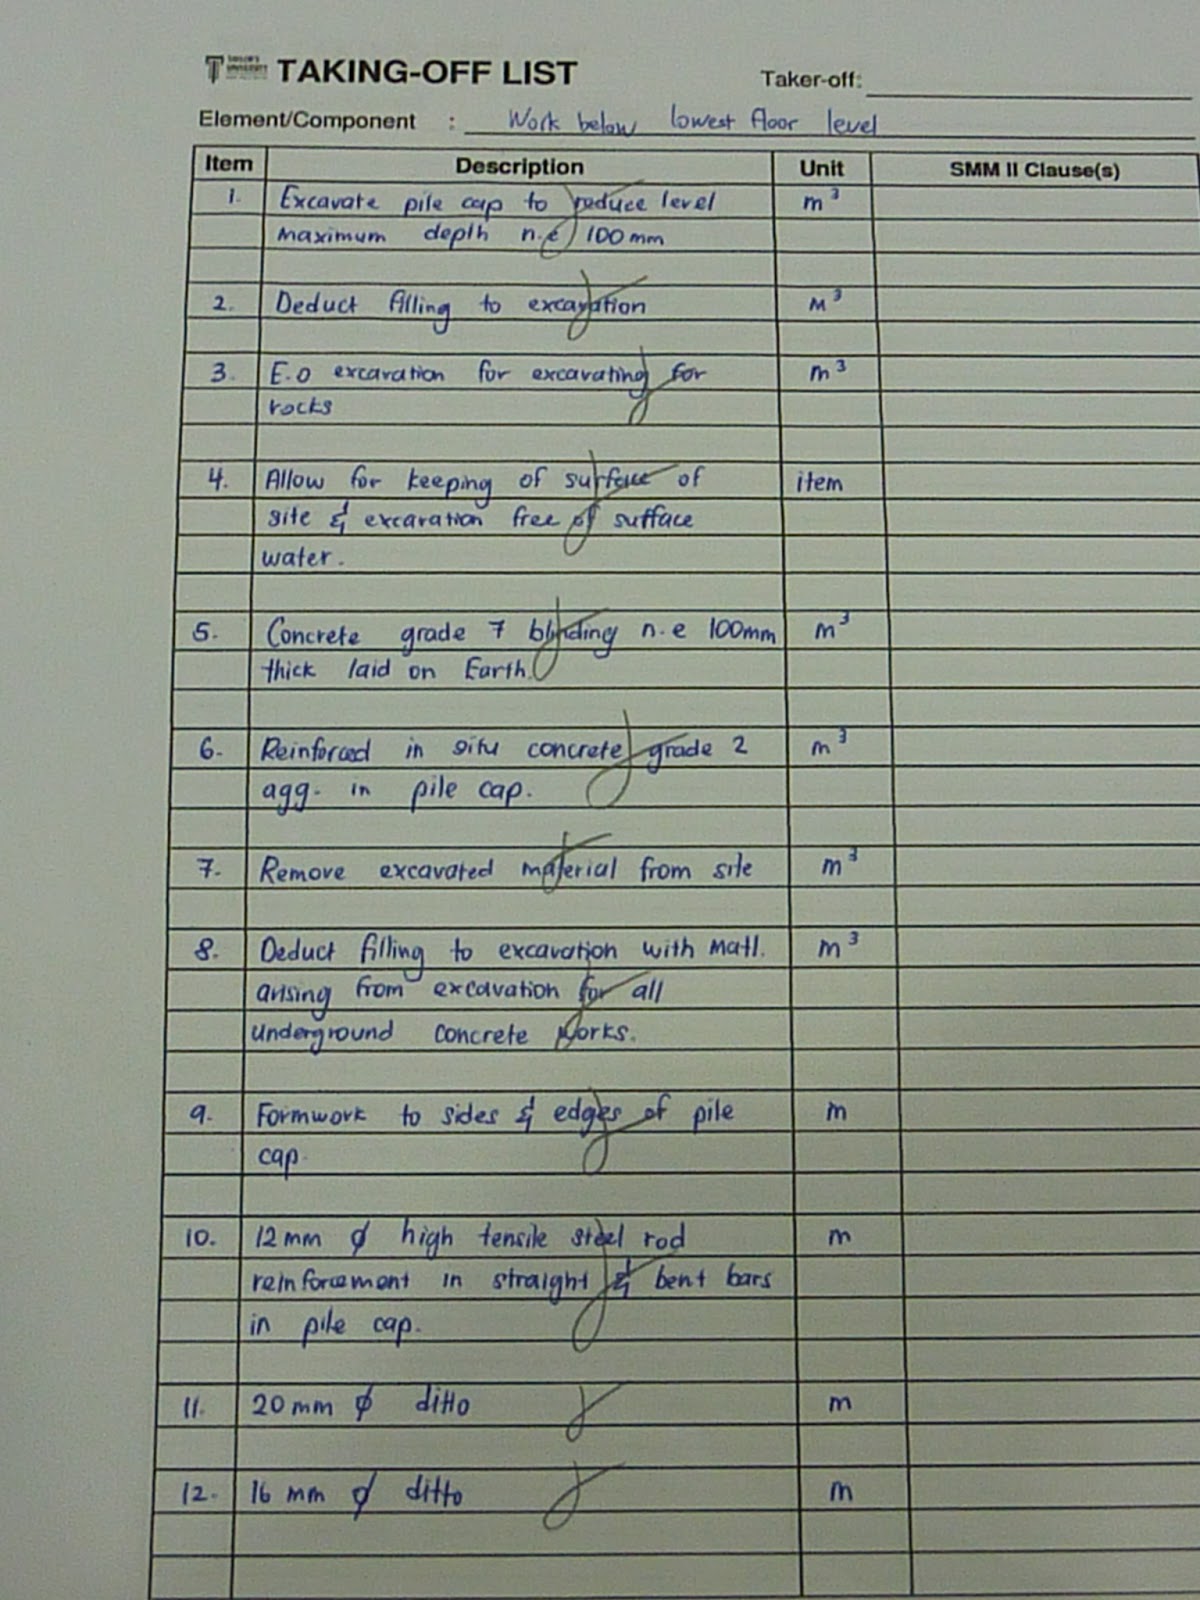 TAYLOR'S
UNIVERSITY
TAKING-OFF LIST
Taker-off:
Element/Component : Work below lowest floor level
Item Description Unit SMM II Clause(s)
1. Excavate pile cap to reduce level m³
maximum depth n.e 100 mm
2. Deduct filling to excavation m³
3. E.o excavation for excavating for m³
rocks
4. Allow for keeping of surface of item
site & excavation free of surface
water.
5. Concrete grade 7 blinding n.e 100mm m³
thick laid on Earth.
6. Reinforced in situ concrete grade 2 m³
agg. in pile cap.
7. Remove excavated material from site m³
8. Deduct filling to excavation with matl. m³
arising from excavation for all
underground concrete works.
9. Formwork to sides & edges of pile m
cap.
10. 12 mm ϕ high tensile steel rod m
reinforcement in straight & bent bars
in pile cap.
11. 20 mm ϕ ditto m
12. 16 mm ϕ ditto m